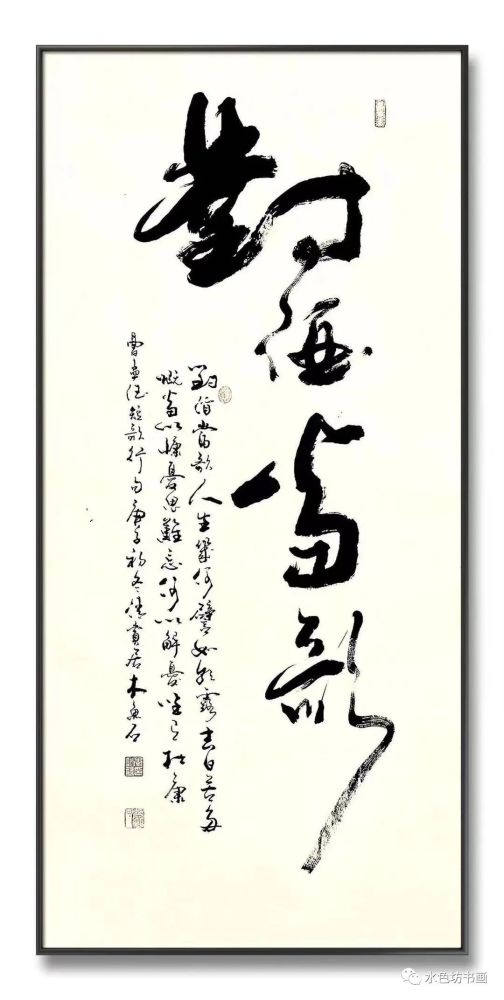 對酒當歌
對酒當歌人生幾何譬如朝露去日苦多
慨當以慷憂思難忘何以解憂唯有杜康
曹孟德短歌行句庚子初冬佳賞居木魚石
水色坊书画